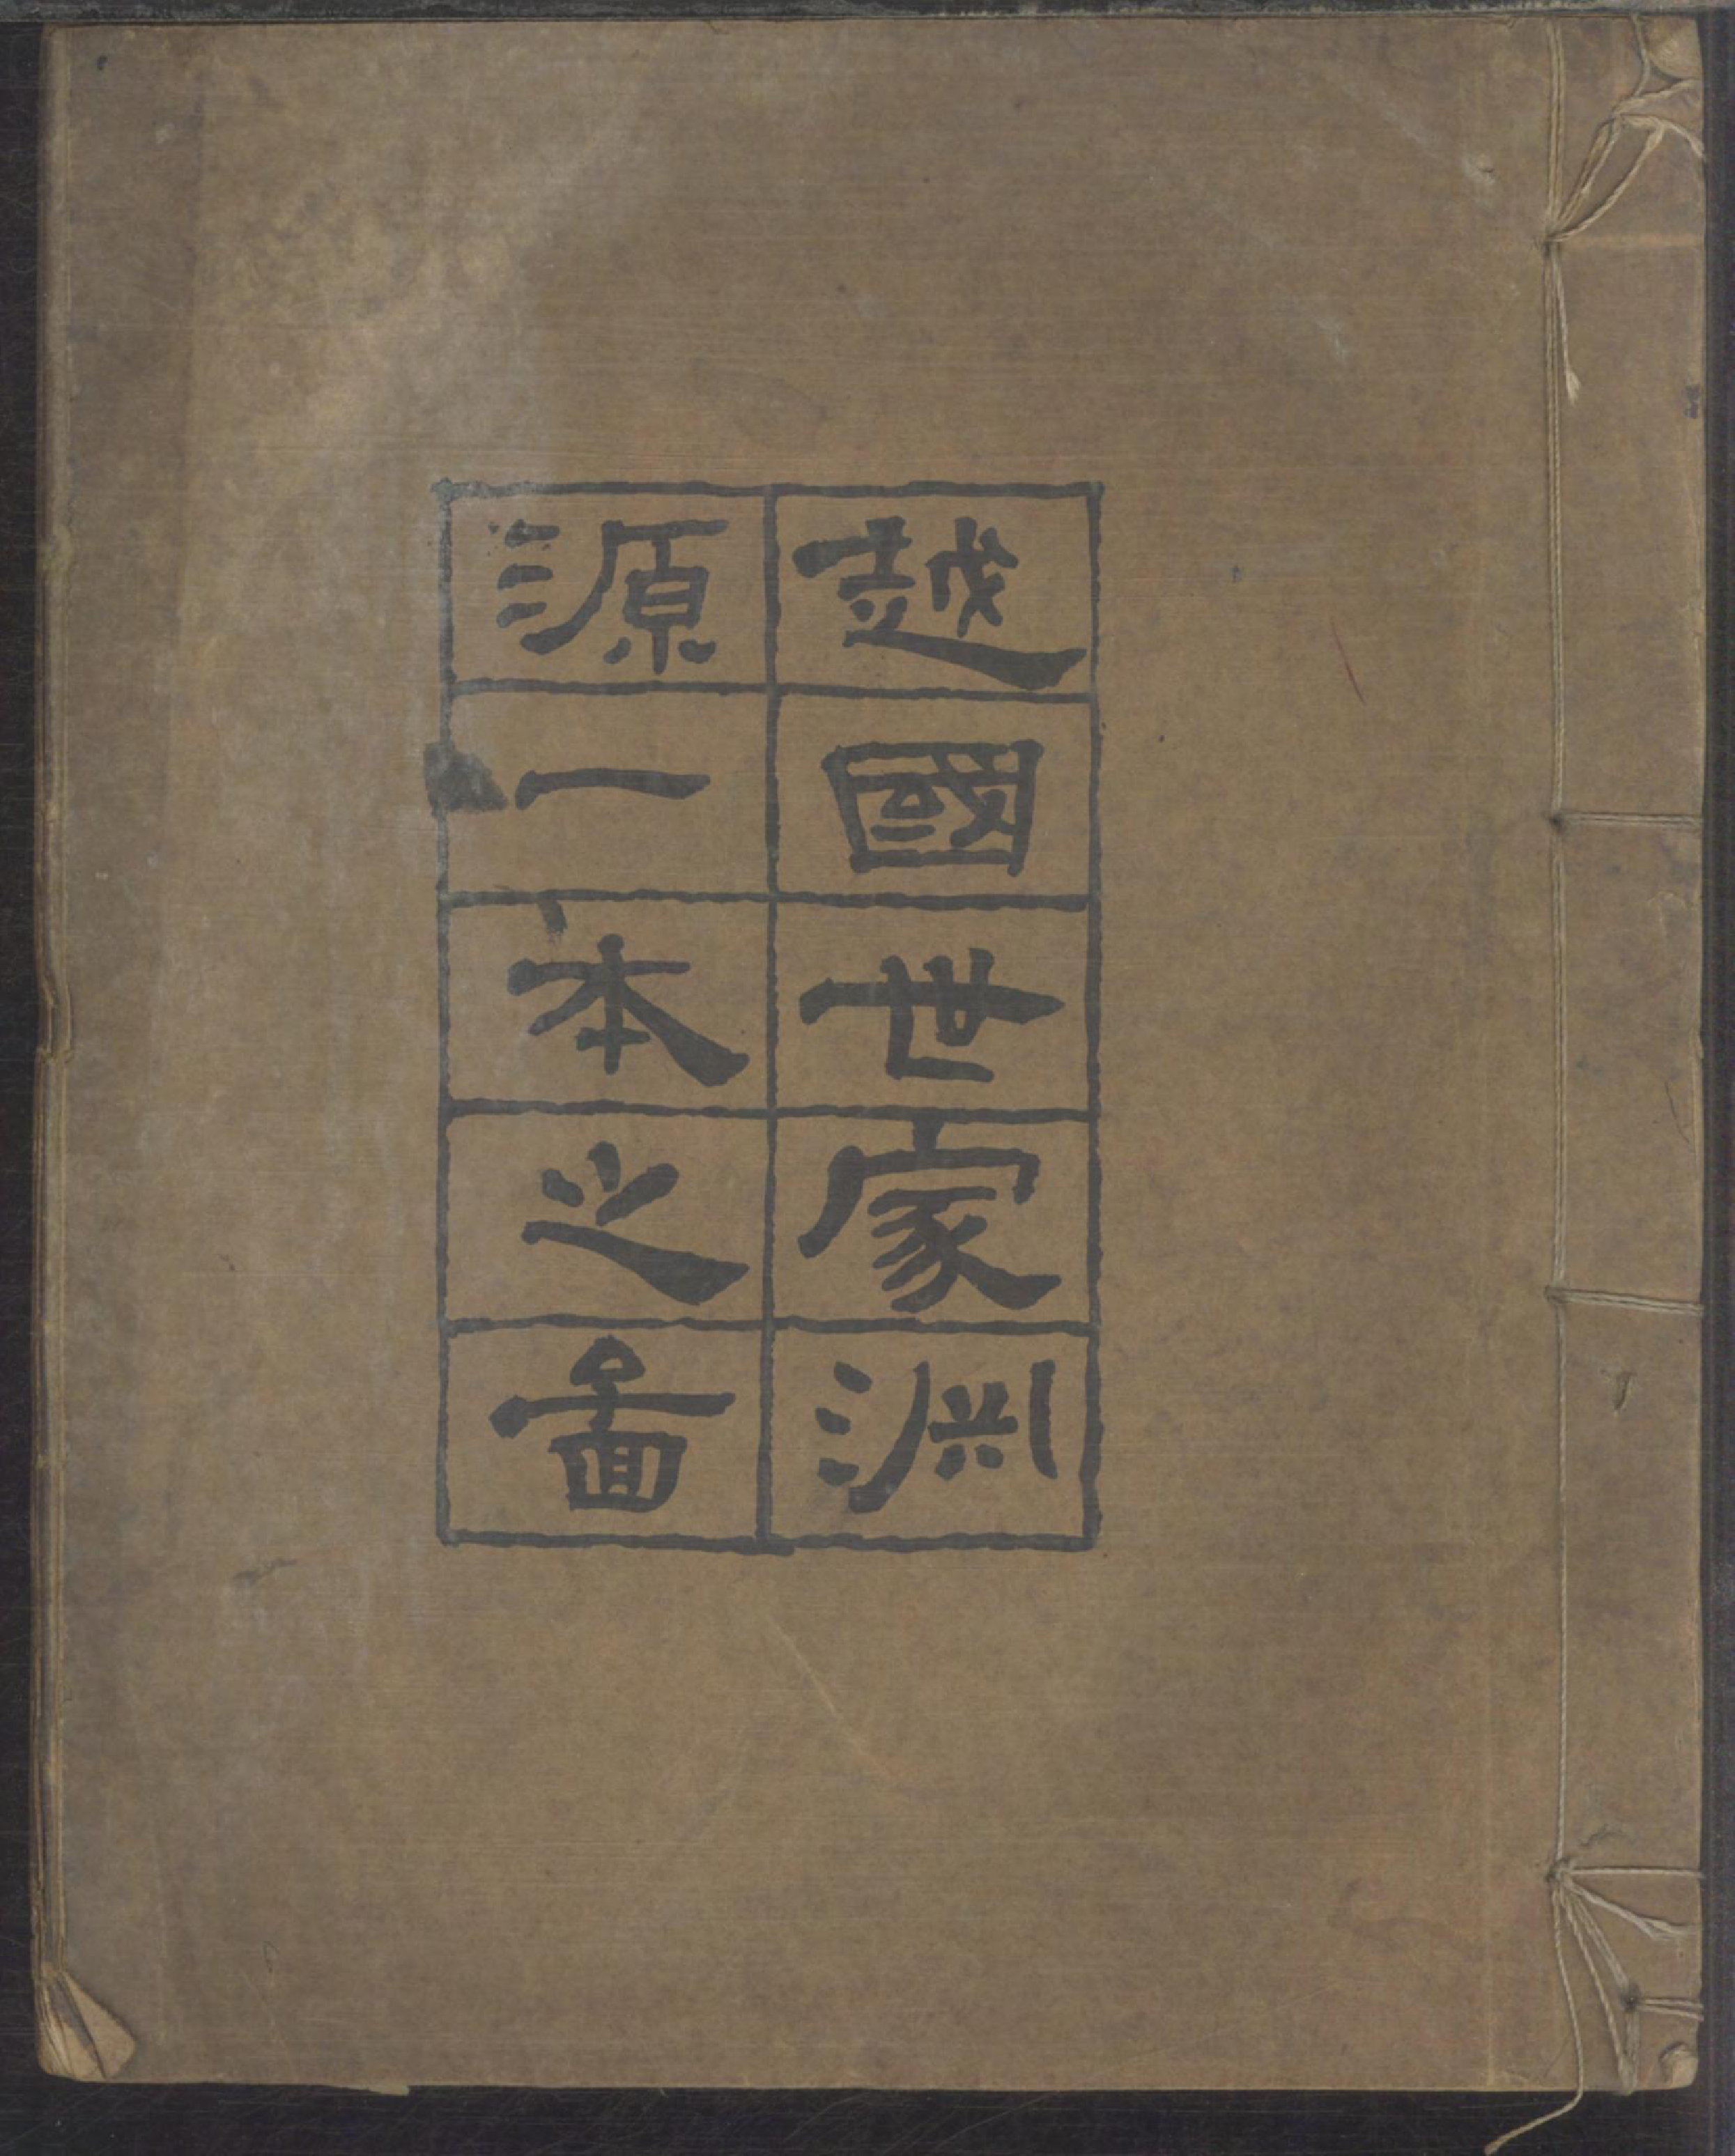 越國世家淵
源一本之圖